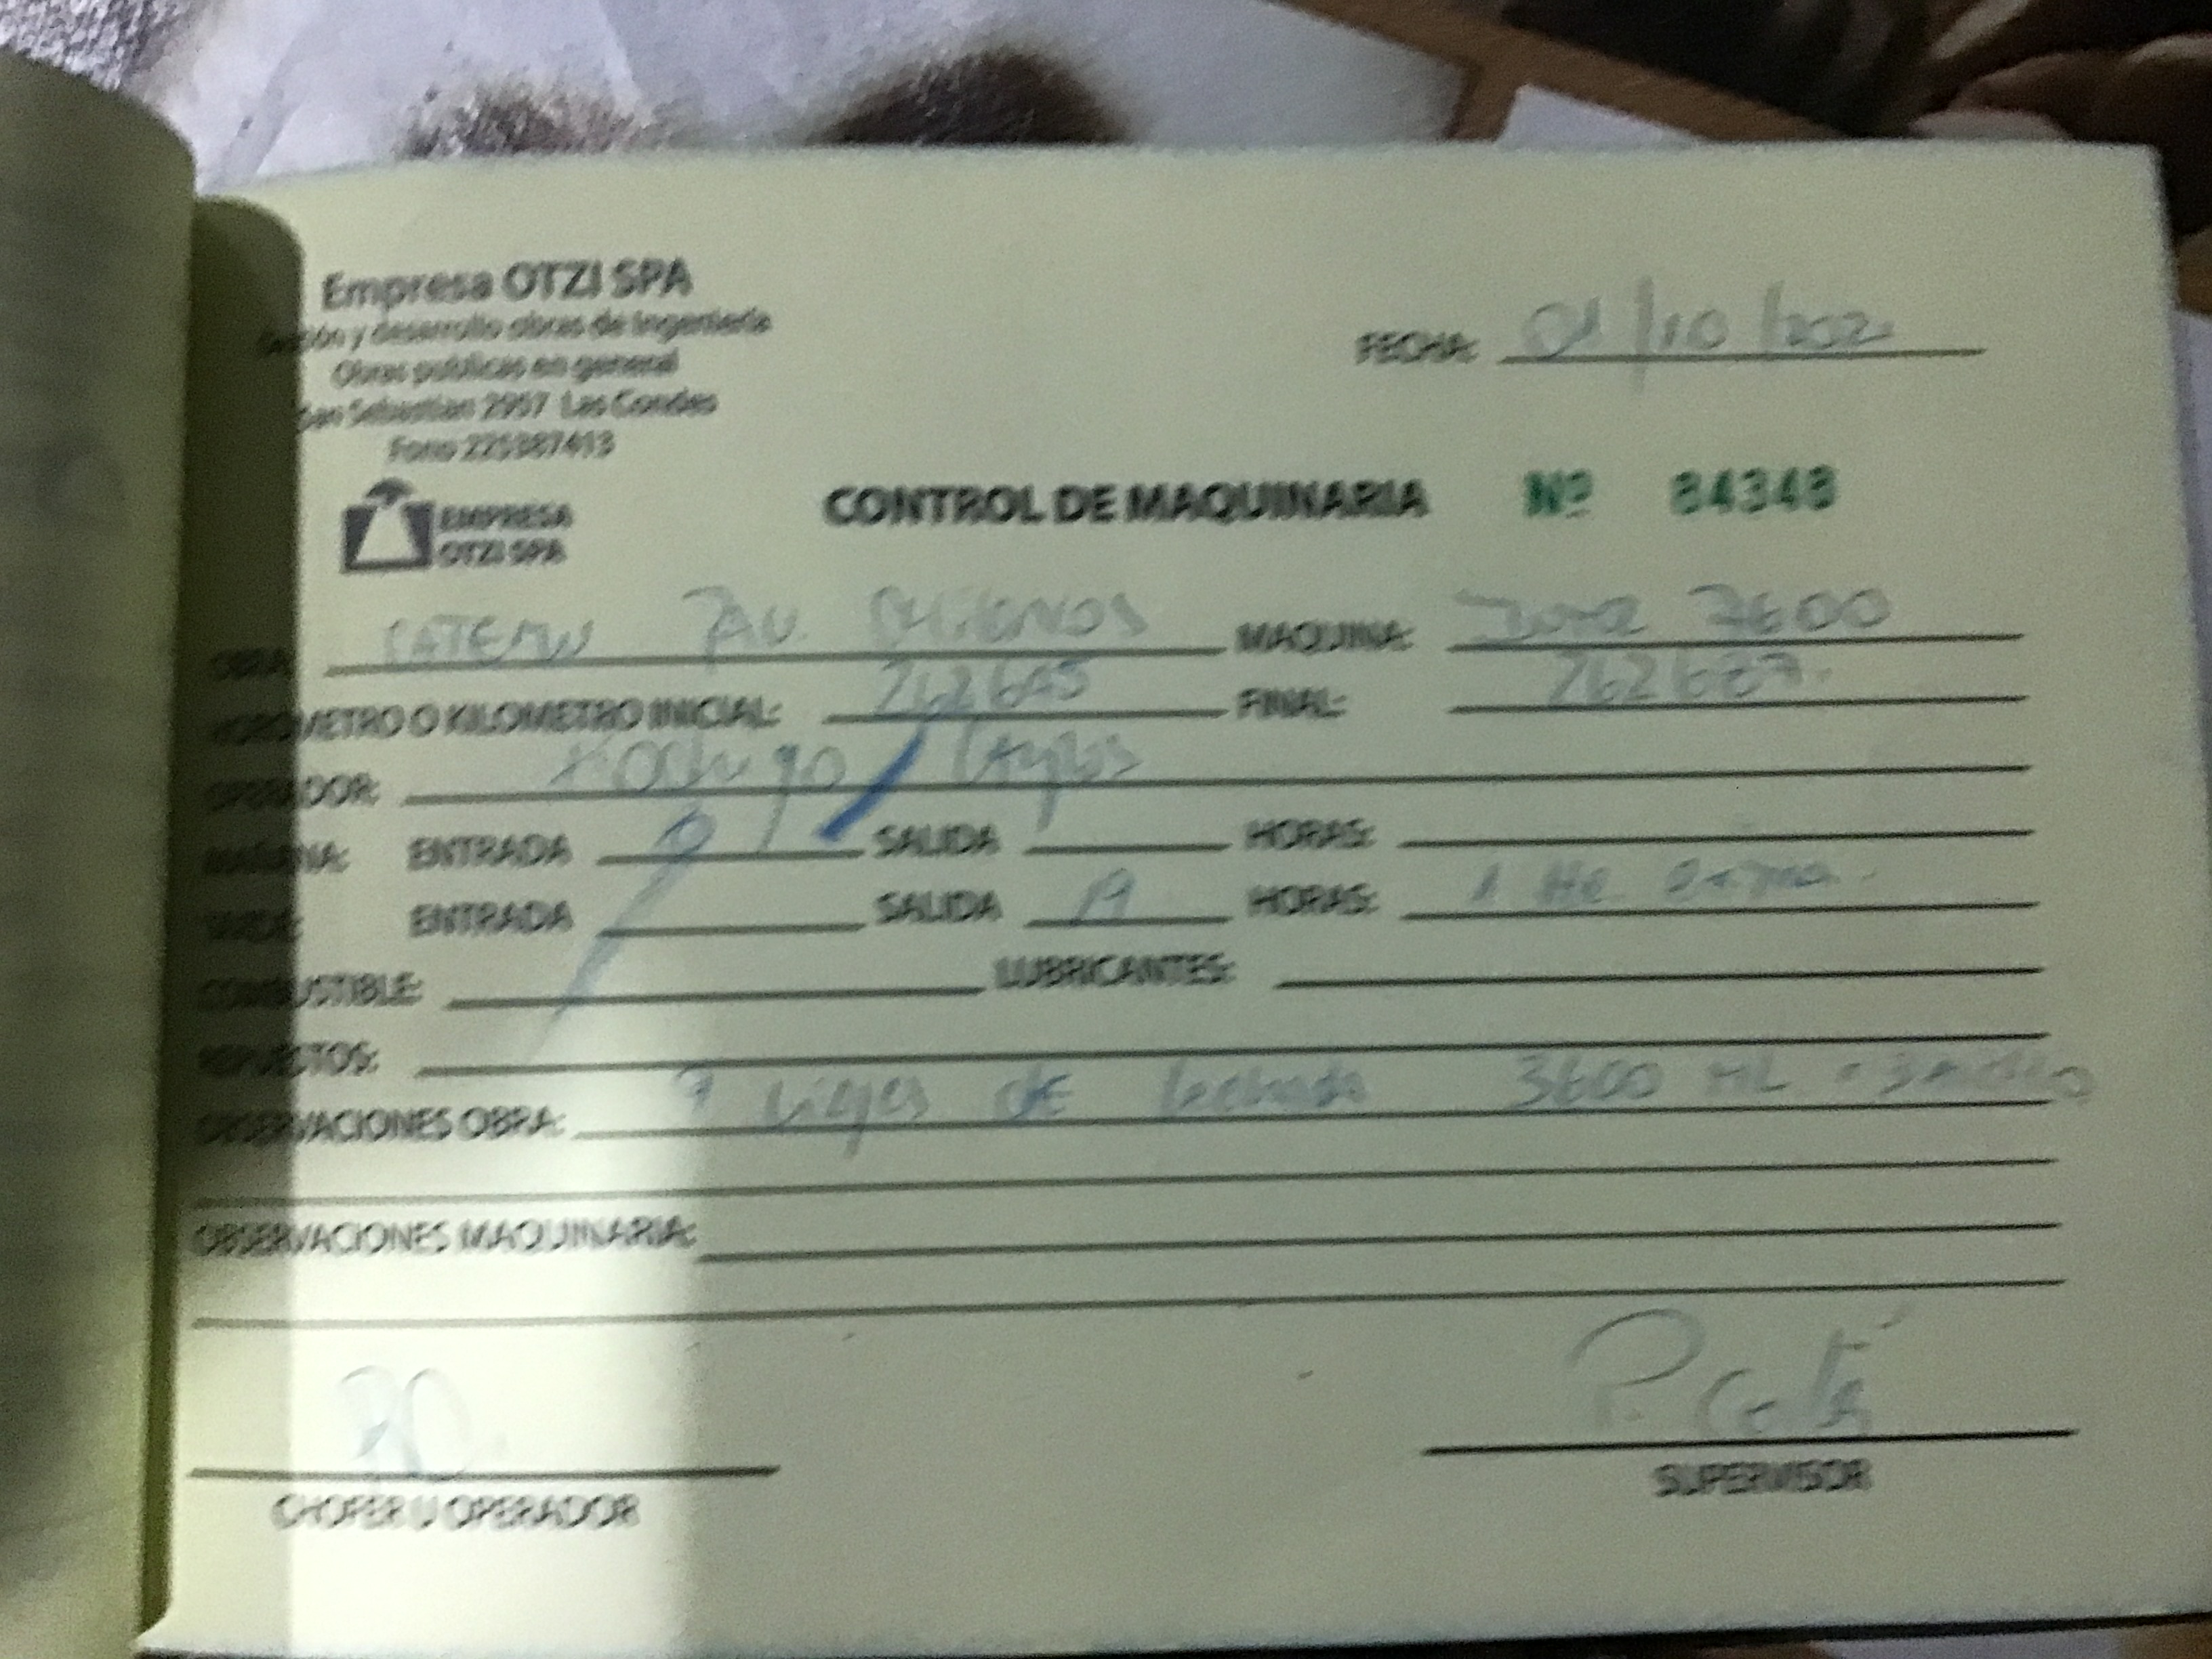 Empresa OTZI SPA
y desarrollo obras de Ingeniería
Obras públicas en general
San Sebastian 2957 Las Condes
Fono 225387413
FECHA: 01/10/202
EMPRESA
OTZI SPA
CONTROL DE MAQUINARIA Nº 84348
OBRA: CATEMU PAV. MAQUINA: 7600
HOROMETRO O KILOMETRO INICIAL: FINAL:
OPERADOR: Rodrigo
MAÑANA: ENTRADA SALIDA HORAS:
TARDE: ENTRADA SALIDA 19 HORAS: 1 Hr extra.
COMBUSTIBLE: LUBRICANTES:
REPUESTOS:
OBSERVACIONES OBRA: viajes de lechada 3600 ML
OBSERVACIONES MAQUINARIA:
CHOFER U OPERADOR
SUPERVISOR